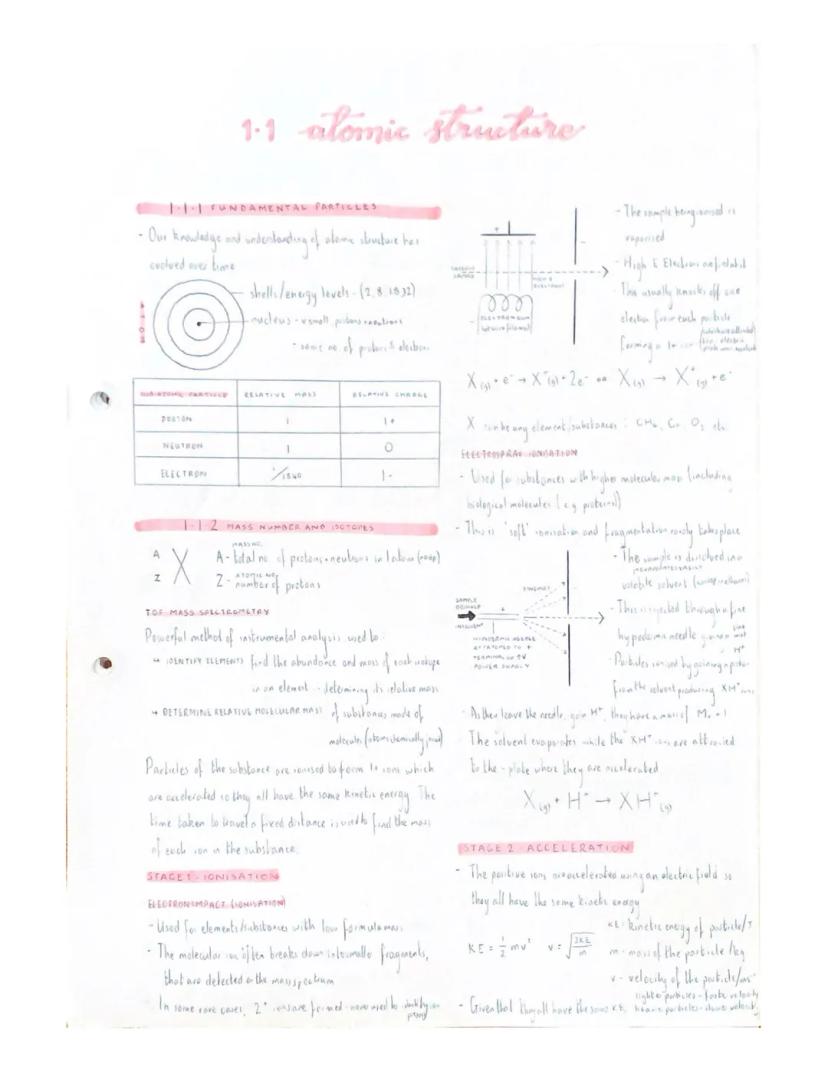 1.1 atomic structure
1.1.1 FUNDAMENTAL PARTICLES
- Our knowledge and understanding of atomic structure has
evolved over time
shells/energy levels - (2, 8, 18, 32)
nucleus - small, protons + neutrons
- same no. of protons & electrons
SUBATOMIC PARTICLE RELATIVE MASS RELATIVE CHARGE
PROTON 1 1+
NEUTRON 1 0
ELECTRON 1/1840 1-
1.1.2 MASS NUMBER AND ISOTOPES
A
X
Z
MASS NO.
A - total no. of protons + neutrons in 1 atom
ATOMIC NO.
Z - number of protons
TOF MASS SPECTROMETRY
Powerful method of instrumental analysis used to:
↳ IDENTIFY ELEMENTS find the abundance and mass of each isotope
in an element - determining its relative mass
↳ DETERMINE RELATIVE MOLECULAR MASS of substances made of
molecules
Particles of the substance are ionised to form 1+ ions which
are accelerated so they all have the same kinetic energy. The
time taken to travel a fixed distance is used to find the mass
of each ion in the substance.
STAGE 1 - IONISATION
ELECTRON IMPACT (IONISATION)
- Used for elements/substances with low formula mass
- The molecular ion often breaks down into smaller fragments,
that are detected on the mass spectrum
In some rare cases, 2+ ions are formed
- The sample being ionised is
vaporised
- High E Electrons are fired at it
- This usually knocks off one
electron from each particle
forming a 1+ ion
X(g) + e- → X+(g) + 2e- or X(g) → X+(g) + e-
X can be any element/substances: CH4, Cr, O2 etc
ELECTROSPRAY IONISATION
- Used for substances with higher molecular mass (including
biological molecules (e.g. proteins))
- This is 'soft' ionisation and fragmentation rarely takes place
SAMPLE
DISSOLVED
IN SOLVENT
HYPODERMIC NEEDLE
ATTATCHED TO +
TERMINAL OF HV
POWER SUPPLY
- The sample is dissolved in a
volatile solvent
- This is injected through a fine
hypodermic needle
H+
- Particles ionised by gaining a proton
from the solvent producing XH+ ions
- As they leave the needle, gain H+, they have a mass of Mr + 1
- The solvent evaporates while the XH+ ions are attracted
to the - plate where they are accelerated
X(g) + H+ → XH+(g)
STAGE 2 - ACCELERATION
- The positive ions are accelerated using an electric field so
they all have the same kinetic energy
KE = 1/2 mv² v = √2KE/m
KE - kinetic energy of particle/J
m - mass of the particle/kg
v - velocity of the particle/ms-1
lighter particles - faster velocity
- Given that they all have the same KE, heavier particles - slower velocity